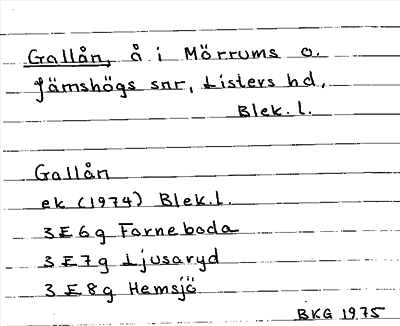 Gallån, å i Mörrums o.
Jämshögs snr, Listers hd,
Blek. l.
Gallån
ek (1974) Blek. l.
3E6g Farneboda
3E7g Ljusaryd
3E8g Hemsjö
BKG 1975